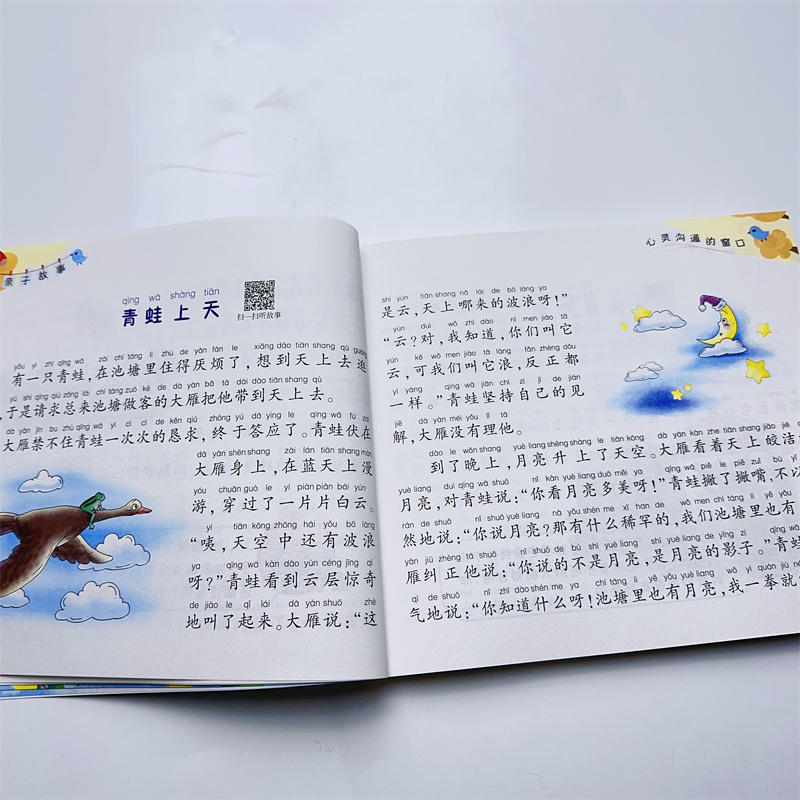 亲子故事
qīng wā shàng tiān
青蛙上天
扫一扫听故事
yǒu yì zhī qīng wā zài chí táng lǐ zhù de yàn fán le xiǎng dào tiān shang qù guàng
有一只青蛙，在池塘里住得厌烦了，想到天上去逛
yú shì qǐng qiú zǒng lái chí táng zuò kè de dà yàn bǎ tā dài dào tiān shang qù
于是请求总来池塘做客的大雁把他带到天上去。
dà yàn jīn bu zhù qīng wā yí cì cì de kěn qiú zhōng yú dā yìng le qīng wā fú zài
大雁禁不住青蛙一次次的恳求，终于答应了。青蛙伏在
dà yàn shēn shàng zài lán tiān shang màn
大雁身上，在蓝天上漫
yóu chuān guò le yí piàn piàn bái yún
游，穿过了一片片白云。
yí tiān kōng zhōng hái yǒu bō làng
“咦，天空中还有波浪
ya qīng wā kàn dào yún céng jīng qí
呀？”青蛙看到云层惊奇
de jiào le qǐ lái dà yàn shuō zhè
地叫了起来。大雁说：“这
心灵沟通的窗口
shì yún tiān shang nǎ lái de bō làng ya
是云，天上哪来的波浪呀！”
yún duì wǒ zhī dào nǐ men jiào tā
“云？对，我知道，你们叫它
yún kě wǒ men jiào tā làng fǎn zhèng dōu
云，可我们叫它浪，反正都
yí yàng qīng wā jiān chí zì jǐ de jiàn
一样。”青蛙坚持自己的见
jiě dà yàn méi yǒu lǐ tā
解，大雁没有理他。
dào le wǎn shang yuè liang shēng shàng le tiān kōng dà yàn kàn zhe tiān shang jiǎo jié
到了晚上，月亮升上了天空。大雁看着天上皎洁
yuè liang duì qīng wā shuō nǐ kàn yuè liang duō měi ya qīng wā piě le piě zuǐ bù yǐ
月亮，对青蛙说：“你看月亮多美呀！”青蛙撇了撇嘴，不以
rán de shuō nǐ shuō yuè liang nà yǒu shén me xī han de wǒ men chí táng lǐ yě yǒu
然地说：“你说月亮？那有什么稀罕的，我们池塘里也有
yàn jiū zhèng tā shuō nǐ shuō de bú shì yuè liang shì yuè liang de yǐng zi qīng wā
雁纠正他说：“你说的不是月亮，是月亮的影子。”青蛙
qì de shuō nǐ zhī dào shén me ya chí táng lǐ yě yǒu yuè liang wǒ yì quán jiù
气地说：“你知道什么呀！池塘里也有月亮，我一拳就